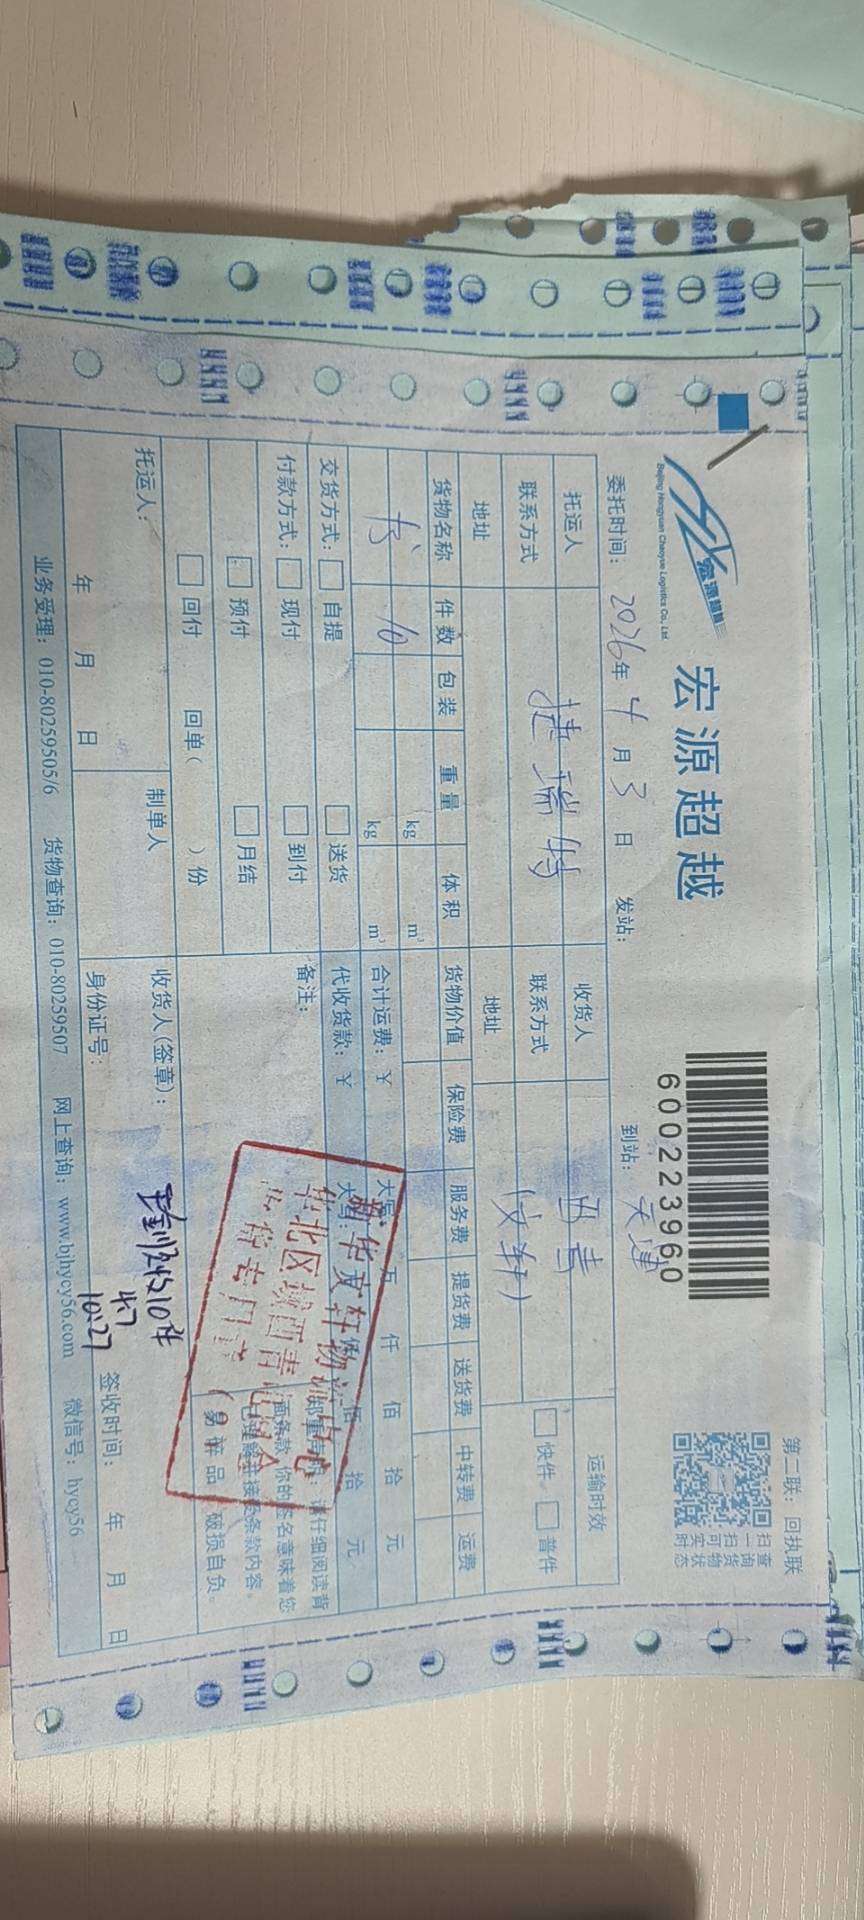 宏源超越
Beijing Hongyuan Chaoyue Logistics Co., Ltd.
宏源超越
600223960
第二联：回执联
扫查
一询
扫货
可物
实状
时态
委托时间：2026年4月3日
发站：
到站：天津
托运人
捷瑞特
收货人
西青
运输时效
联系方式
联系方式
(文轩)
快件
普件
地址
地址
货物名称
件数
包装
重量
体积
货物价值
保险费
服务费
提货费
送货费
中转费
运费
kg
m³
书
10
kg
m³
合计运费：¥
大写：
万
仟
佰
拾
元
交货方式：
自提
送货
代收货款：¥
大写：
仟
佰
拾
元
付款方式：
现付
到付
备注：
预付
月结
回付
回单（ ）份
请仔细阅读背
面条款，你的签名意味着您
理解并接受条款内容。
（易碎品 破损自负。
新华文轩物流中心
华北区域西青
托运人：
年 月 日
制单人
收货人(签章)：
10件
4.7
10:27
身份证号：
签收时间：
年 月 日
业务受理：010-80259505/6
货物查询：010-80259507
网上查询：www.bjhycy56.com
微信号：hycy56